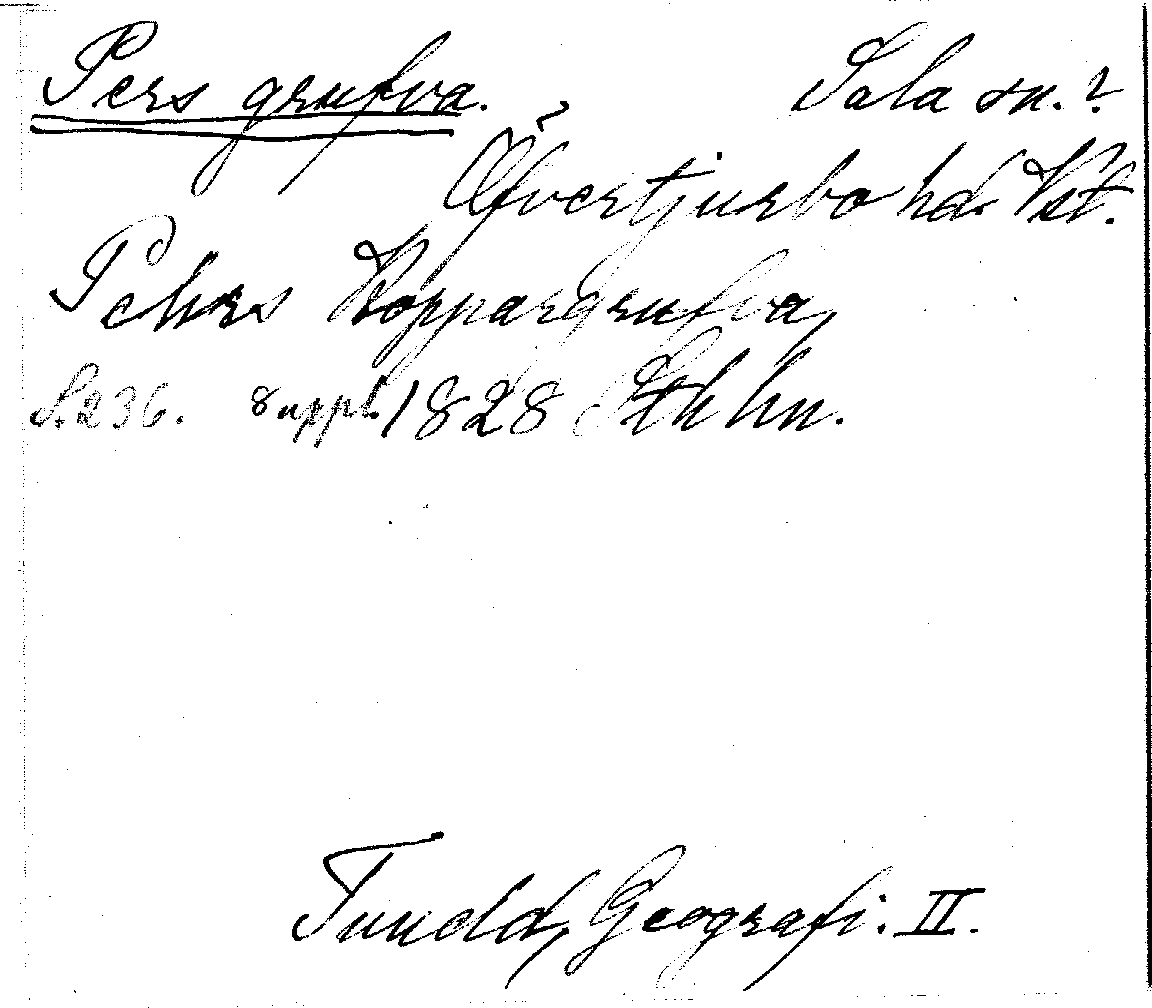 Pers grufva. Sala sn.?
Öfvertjurbo hd. Vst.
Pehrs Koppargrufva,
S. 236. 8 uppl. 1828 Sthlm.
Tuneld, Geografi. II.